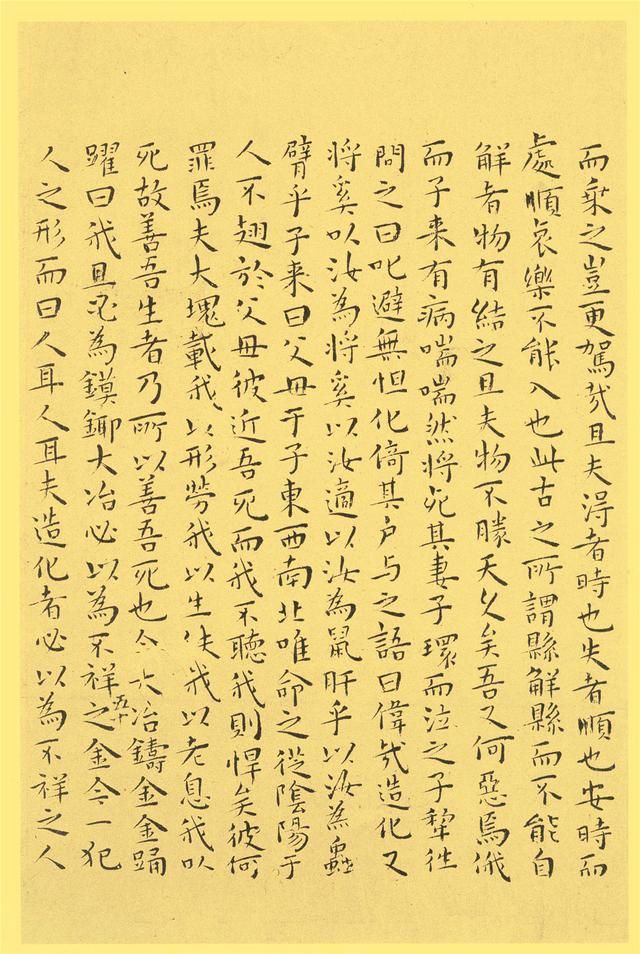 而乗之豈更駕哉且夫淂者時也失者順也安時而
處順哀樂不能入也此古之所謂縣解縣而不能自
解者物有結之且夫物不勝天久矣吾又何惡焉俄
而子来有病喘喘然将死其妻子環而泣之子犂往
問之曰叱避無怛化倚其户与之語曰偉哉造化又
将奚以汝為将奚以汝適以汝為鼠肝乎以汝為蟲
臂乎子来曰父母于子東西南北唯命之從陰陽于
人不翅於父母彼近吾死而我不聽我則悍矣彼何
罪焉夫大塊載我以形勞我以生佚我以老息我以
死故善吾生者乃所以善吾死也今大冶鑄金金踊
躍曰我且必為鏌鋣大冶必以為不祥之金今一犯
五十
人之形而曰人耳人耳夫造化者必以為不祥之人